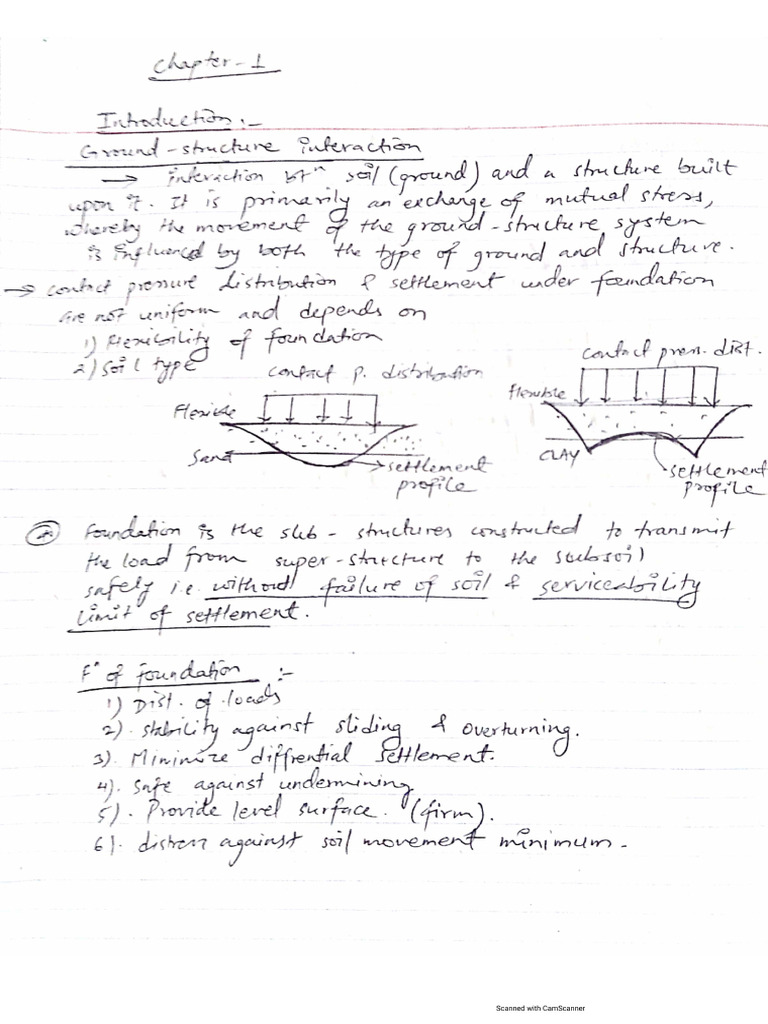 Chapter-1
Introduction:-
Ground-structure interaction
→ interaction btn soil (ground) and a structure built
upon it. It is primarily an exchange of mutual stress,
whereby the movement of the ground-structure system
is influenced by both the type of ground and structure.
→ contact pressure distribution & settlement under foundation
are not uniform and depends on
1) Flexibility of foundation
2) Soil type
contact p. distribution
Flexible
Sand
settlement
profile
contact press. dist.
flexible
CLAY
settlement
profile
Foundation is the sub-structures constructed to transmit
the load from super-structure to the subsoil
safely i.e. without failure of soil & serviceability
limit of settlement.
Fn of foundation :-
1) Dist. of loads
2). Stability against sliding & overturning.
3). Minimize diffrential settlement.
4). Safe against undermining
5). Provide level surface. (firm).
6). distress against soil movement minimum.
Scanned with CamScanner